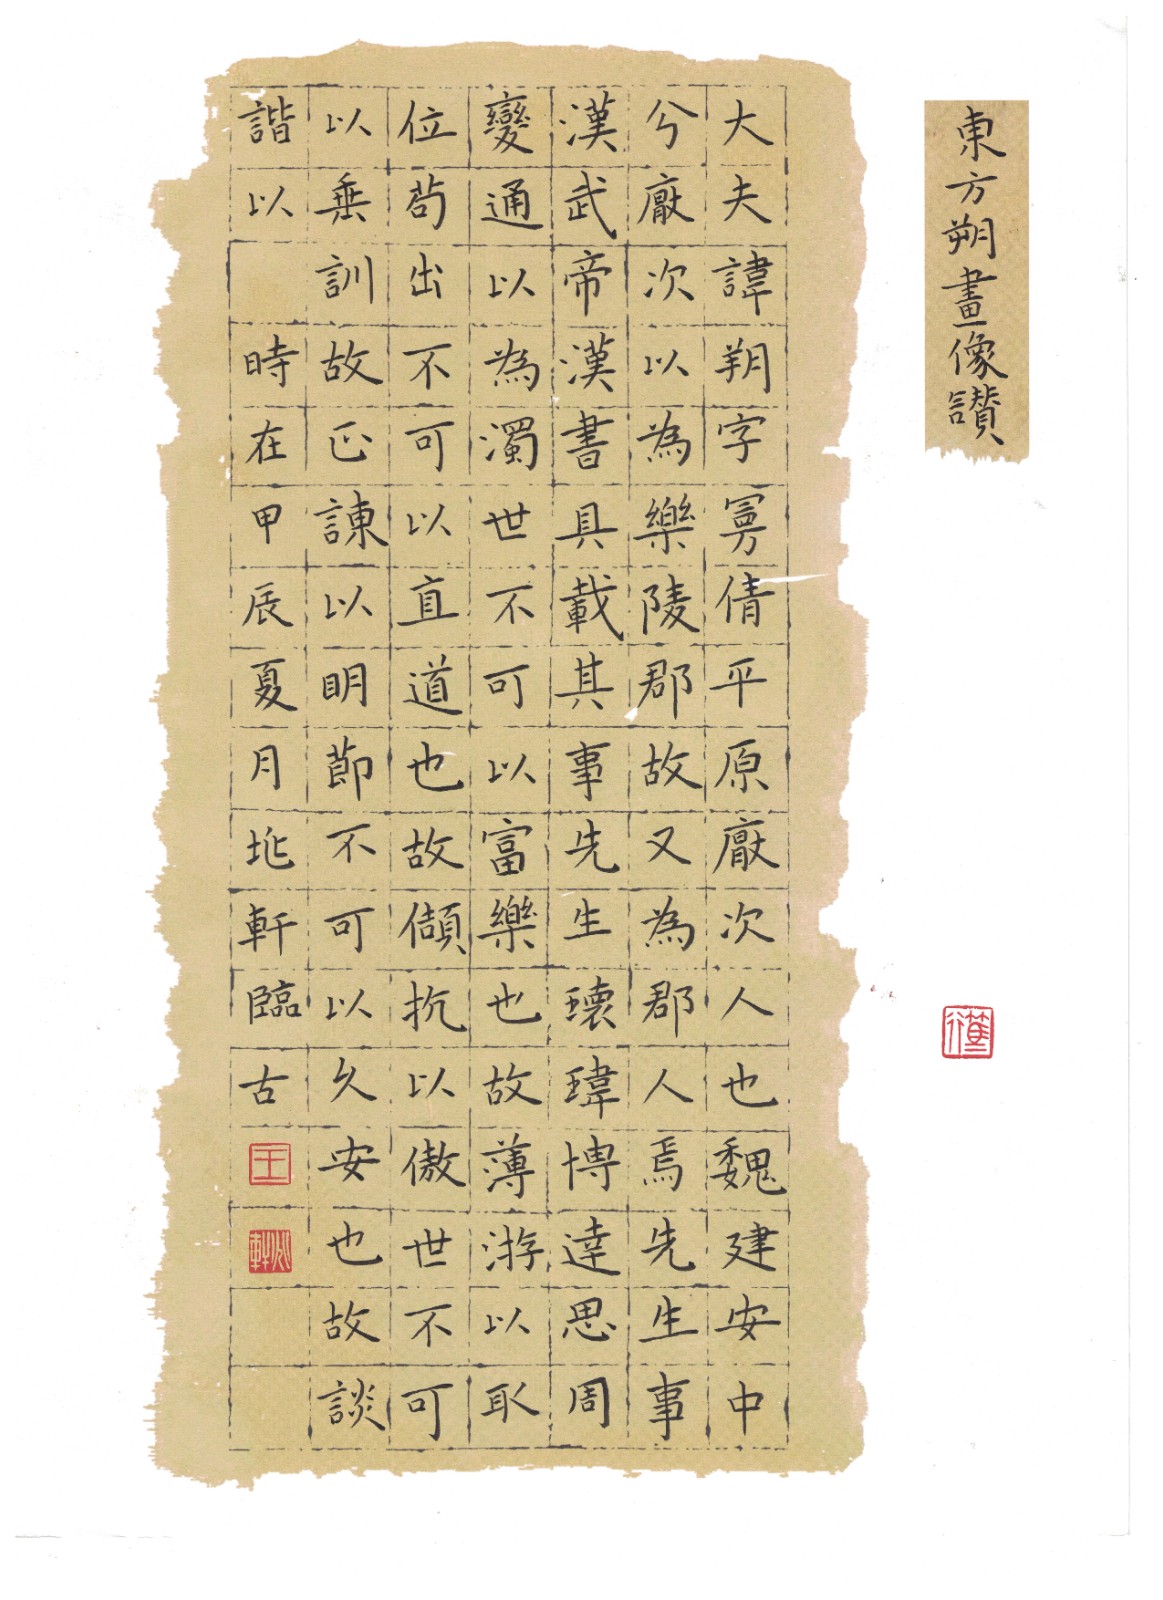 東方朔畫像讃
大夫諱朔字曼倩平原厭次人也魏建安中
分厭次以為樂陵郡故又為郡人焉先生事
漢武帝漢書具載其事先生瓌瑋博達思周
變通以為濁世不可以富樂也故薄游以取
位苟出不可以直道也故頡抗以傲世不可
以垂訓故正諫以明節不可以久安也故談
諧以 時在甲辰夏月軒臨古
王